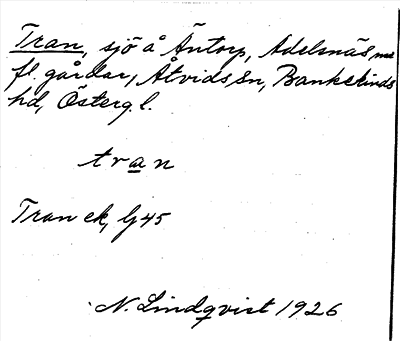 Tran, sjö å Äntorp, Adelsnäs m
fl. gårdar, Åtvids sn, Bankekinds
hd, Östergl.
tran
Tran ek, lj 45
N. Lindqvist 1926